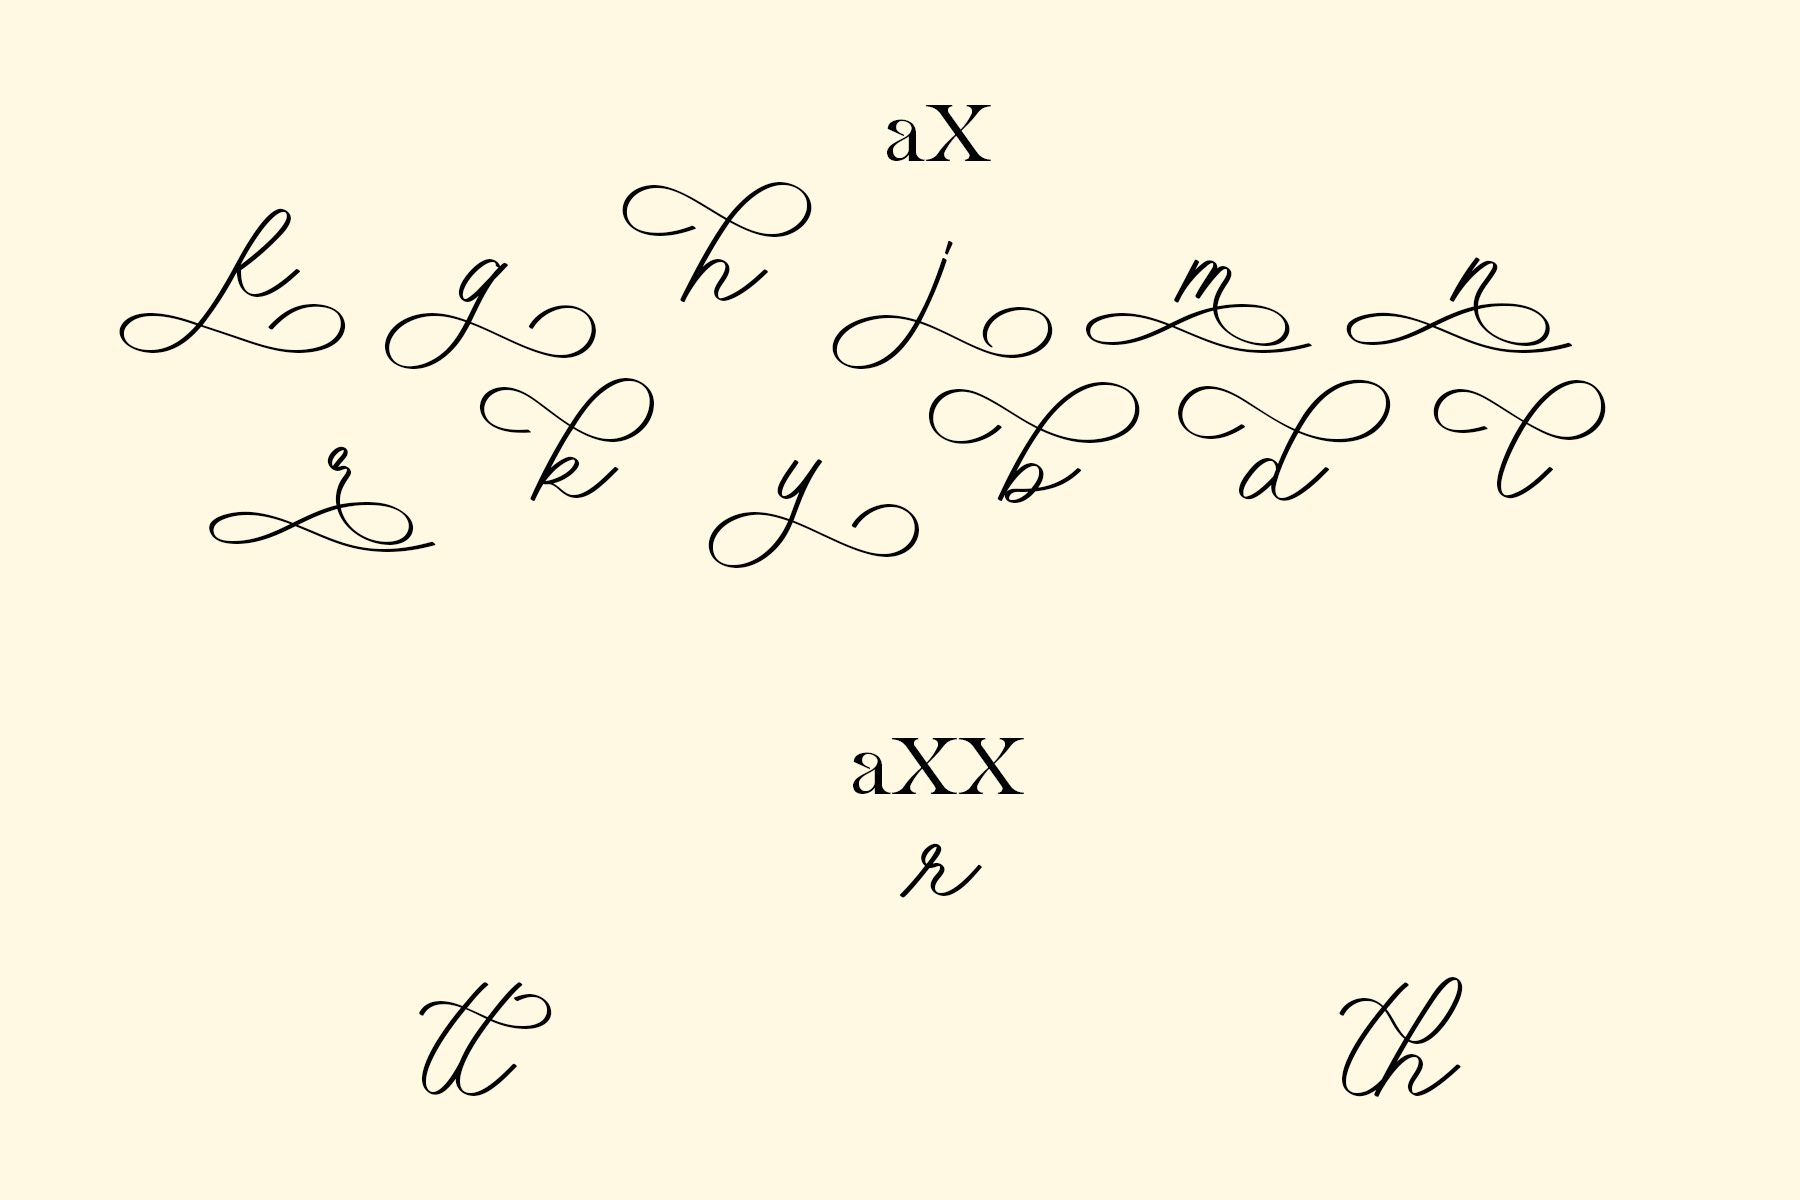 aX
f g h j m n
r k y b d l
aXX
r
tt th